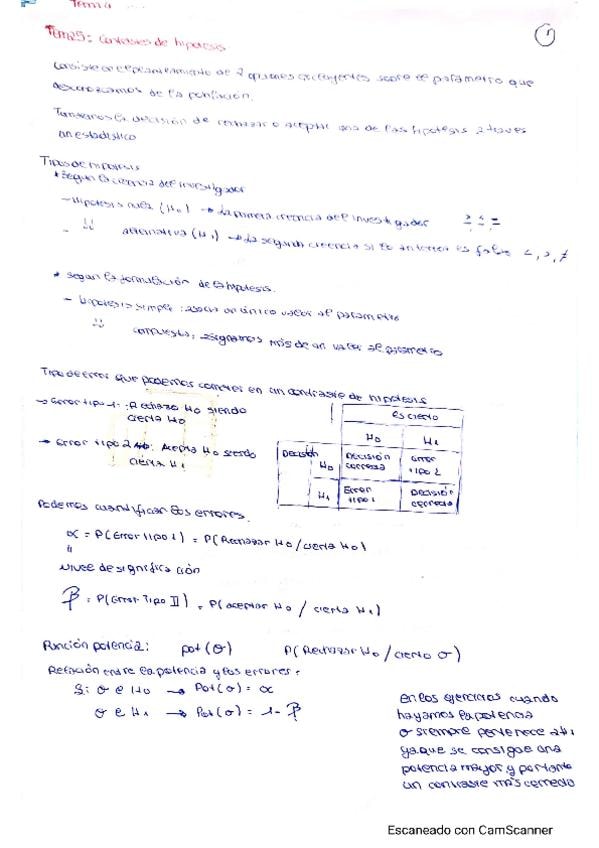 Tema 4
Tema 5: Contrastes de hipotesis
1
Consiste en el planteamiento de 2 opciones excluyentes sobre el parametro que
desconozcamos de la población.
Tomaremos la decisión de rechazar o aceptar una de las hipotesis a traves
un estadistico
Tipos de hipotesis
* Según la creencia del investigador
- Hipotesis nula (H0) → La primera creencia del investigador ≥ ≤ =
- " alternativa (H1) → La segunda creencia si la anterior es falsa <, >, ≠
* Según la formulación de la hipotesis.
- hipotesis simple: asocia un único valor al parametro
" compuesta, asignamos más de un valor al parametro
Tipo de error que podemos cometer en un contraste de hipótesis
→ Error tipo 1: Rechazo H0 siendo
cierta H0
→ Error tipo 2: Acepta H0 siendo
cierta H1
es cierto
H0 H1
Decisión H0 Decisión correcta Error tipo 2
H1 Error tipo 1 Decisión correcta
Podemos cuantificar los errores.
α = P(Error tipo 1) = P(Rechazar H0 / cierta H0)
"
Nivel de significación
β = P(Error Tipo II) = P(aceptar H0 / cierta H1)
Función potencia: pot (θ) P(Rechazar H0 / cierto θ)
Relación entre la potencia y los errores:
Si θ e H0 → Pot(θ) = α
θ e H1 → Pot(θ) = 1 - β
en los ejercicios cuando
hayamos la potencia
θ siempre pertenece a H1
ya que se consigue una
potencia mayor y por tanto
un contraste más correcto
Escaneado con CamScanner